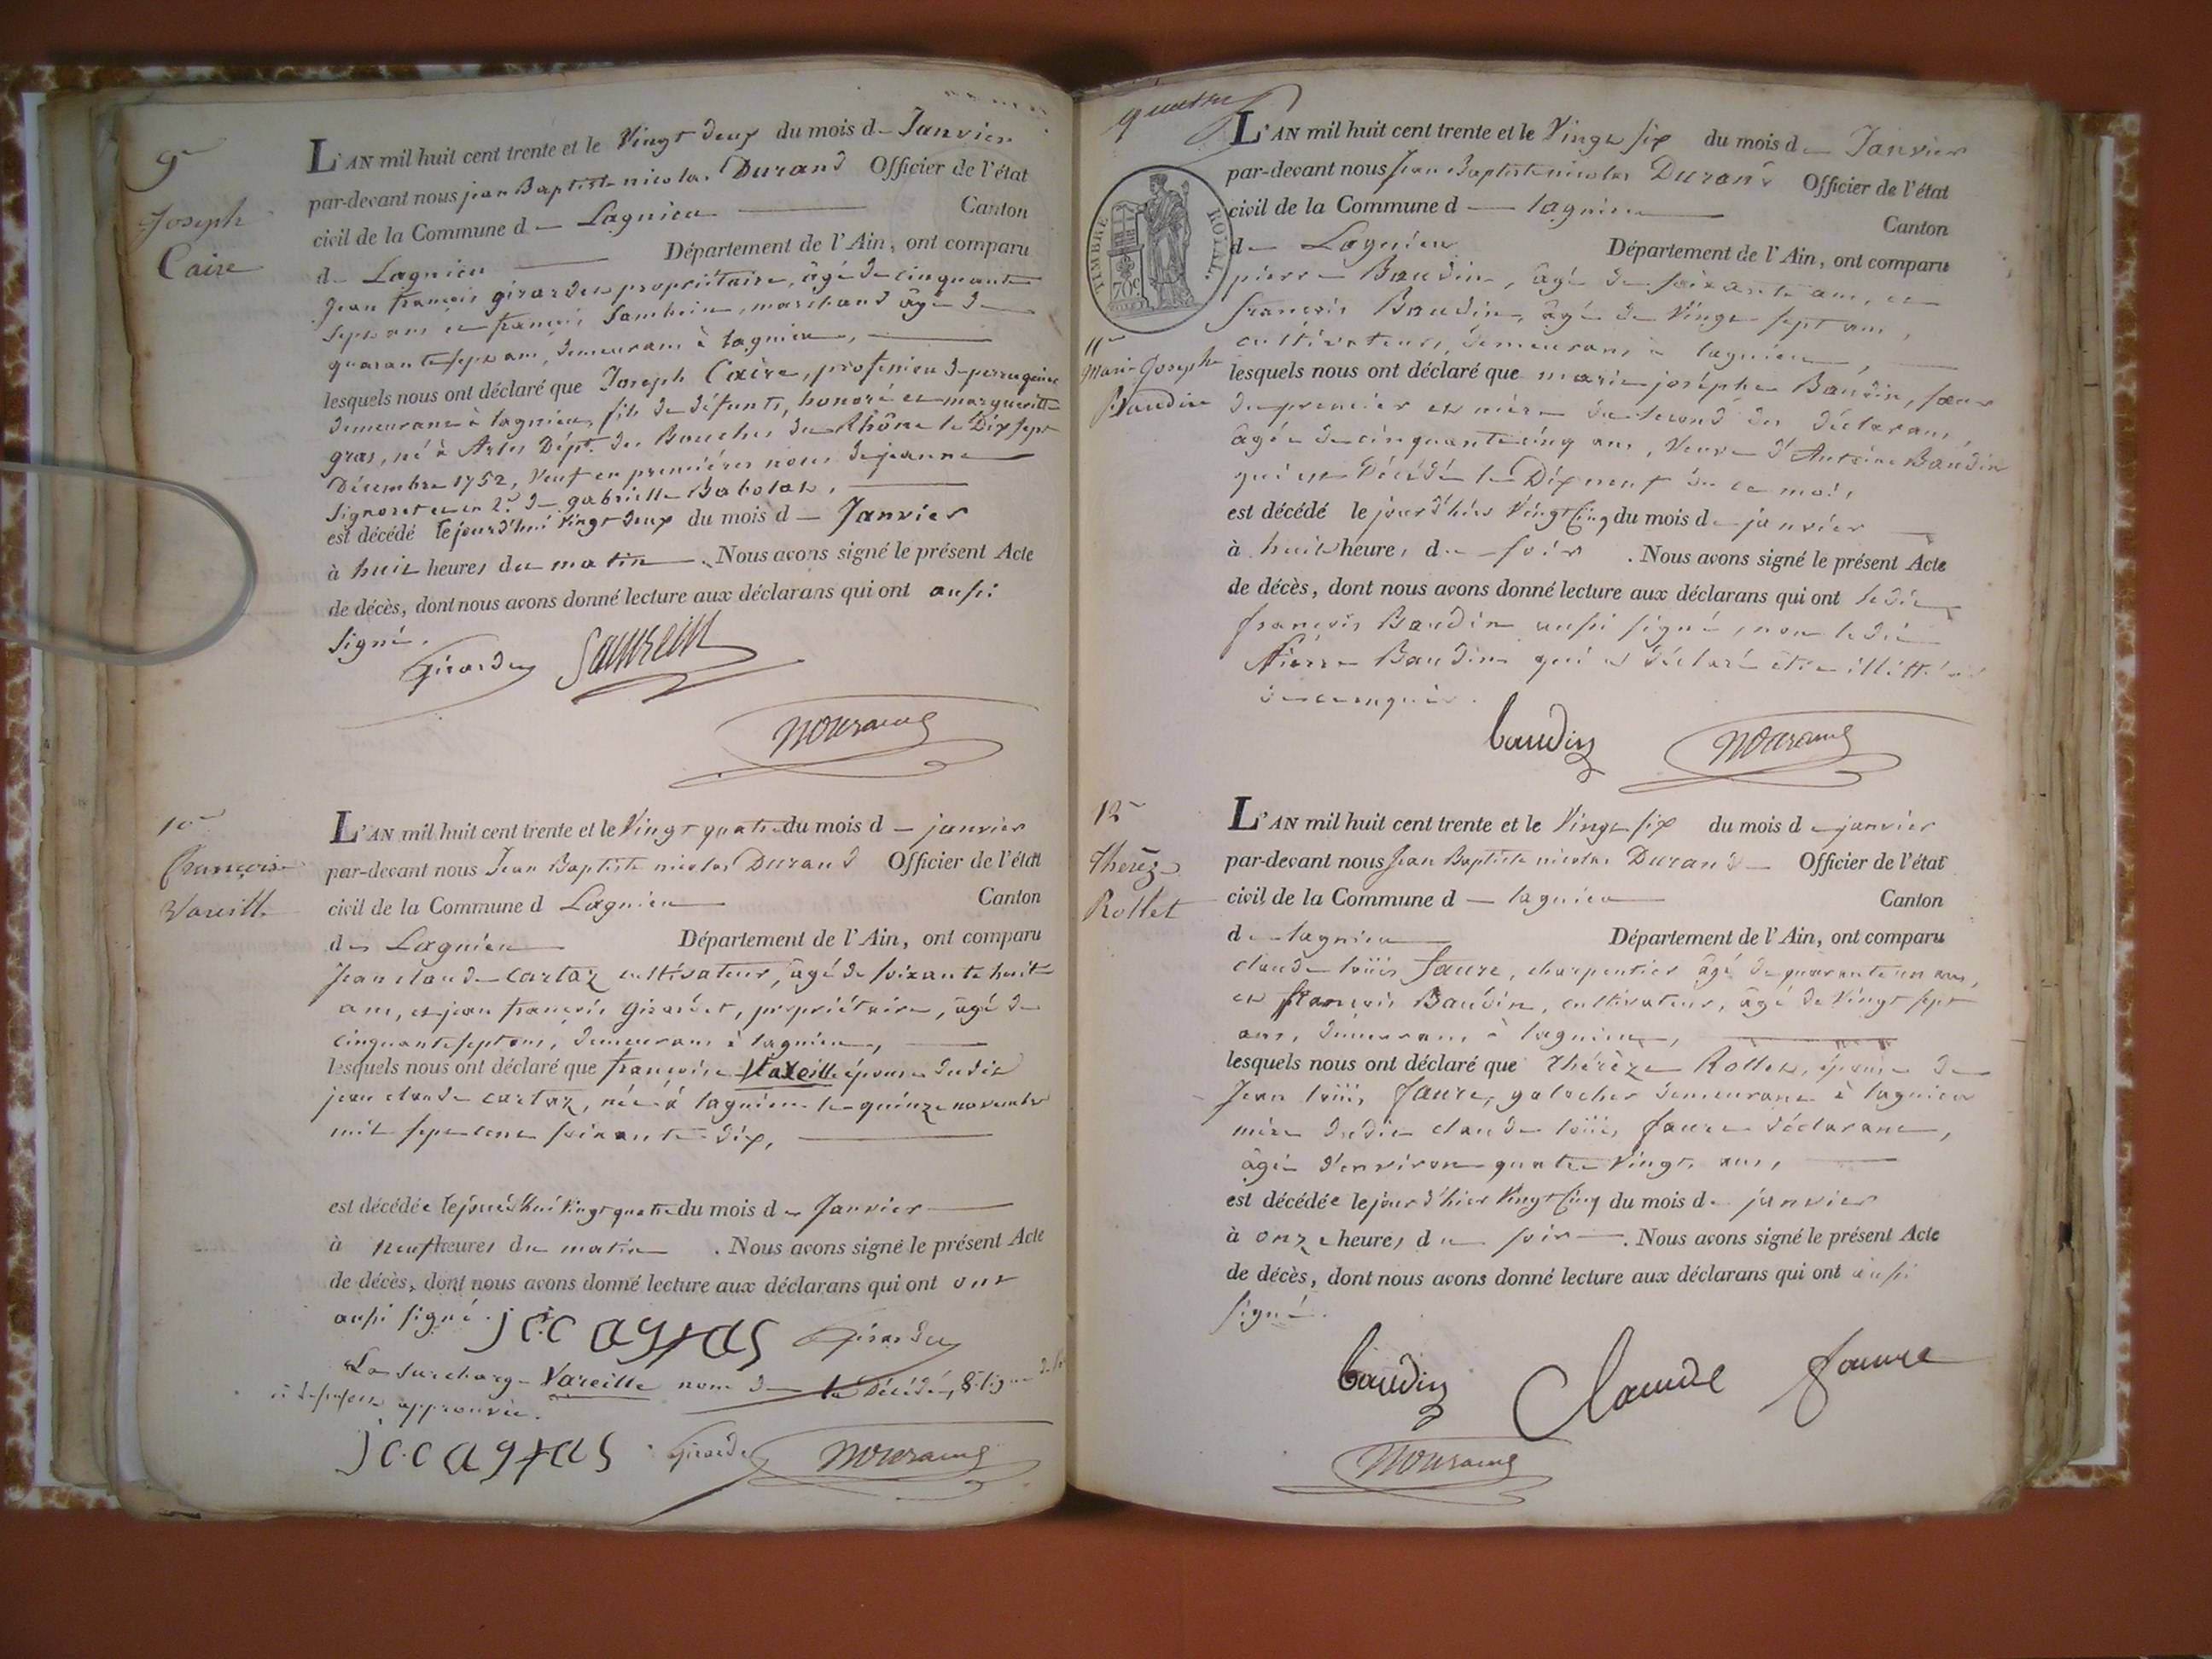 9e
Joseph
Caire
L'AN mil huit cent trente et le Vingt deux du mois de Janvier
par-devant nous jean Baptiste nicolas Durand Officier de l'état
civil de la Commune d Lagnieu Canton
de Lagnieu Département de l'Ain, ont comparu
Jean françois girardet propriétaire, âgé de cinquante
sept ans et françois marchand âgé de
quarante sept ans, demeurans à lagnieu,
lesquels nous ont déclaré que Joseph Caire, profession de perruquier
demeurant à lagnieu, fils de défunts, honoré et margueritte
gras, né à Arles Dépt. des Bouches du Rhône le Dix sept
Décembre 1752, Veuf en premières noces de jeanne
Signoret et en 2.e de gabrielle Babolat,
est décédé le jourd'hui Vingt deux du mois d Janvier
à huit heures du matin. Nous avons signé le présent Acte
de décès, dont nous avons donné lecture aux déclarans qui ont aussi
signé.
Girardet
NDurand
10e
françoise
Vareille
L'AN mil huit cent trente et le Vingt quatre du mois d janvier
par-devant nous Jean Baptiste nicolas Durand Officier de l'état
civil de la Commune d Lagnieu Canton
de Lagnieu Département de l'Ain, ont comparu
Jean claude cartaz cultivateur, âgé de soixante huit
ans, et jean françois girardet, propriétaire, âgé de
cinquante sept ans, demeurans à lagnieu,
lesquels nous ont déclaré que françoise Vareille épouse dudit
jean claude cartaz, née à lagnieu le quinze novembre
mil sept cent soixante dix,
est décédée le jourd'hui Vingt quatre du mois de Janvier
à neuf heures du matin. Nous avons signé le présent Acte
de décès, dont nous avons donné lecture aux déclarans qui ont ont
aussi signé.
Girardet
La surcharge Vareille nom de la décédée, 8e ligne
approuvée.
Girardet NDurand
quatre
TIMBRE ROYAL.
70c
11e
Marie Joseph
Baudin
L'AN mil huit cent trente et le Vingt six du mois de Janvier
par-devant nous Jean Baptiste nicolas Durand Officier de l'état
civil de la Commune d lagnieu
Canton
de Lagnieu Département de l'Ain, ont comparu
pierre Baudin, âgé de soixante ans, et
françois Baudin, âgé de Vingt sept ans,
cultivateurs, demeurans à lagnieu,
lesquels nous ont déclaré que marie josephe Baudin, sœur
du premier et mère du second des déclarans,
âgée de cinquante cinq ans, Veuve d'Antoine Baudin
qui est décédé le Dix neuf de ce mois,
est décédé le jour d'hier Vingt Cinq du mois de janvier
à huit heures du soir. Nous avons signé le présent Acte
de décès, dont nous avons donné lecture aux déclarans qui ont ledit
françois Baudin aussi signé, non ledit
Pierre Baudin qui a déclaré être illittéré
de ce enquis.
baudin NDurand
12e
Thérèze
Rollet
L'AN mil huit cent trente et le Vingt six du mois de janvier
par-devant nous Jean Baptiste nicolas Durand Officier de l'état
civil de la Commune d lagnieu Canton
de lagnieu Département de l'Ain, ont comparu
claude loüis faure, charpentier âgé de quarante un ans,
et françois Baudin, cultivateur, âgé de Vingt sept
ans, demeurans à lagnieu,
lesquels nous ont déclaré que Thérèze Rollet, épouse de
Jean loüis faure, galocher demeurant à lagnieu
mère dudit claude loüis faure déclarant,
âgée d'environ quatre Vingts ans,
est décédée le jour d'hier Vingt Cinq du mois de janvier
à onze heures du soir. Nous avons signé le présent Acte
de décès, dont nous avons donné lecture aux déclarans qui ont aussi
signé.
baudin Claude faure
NDurand